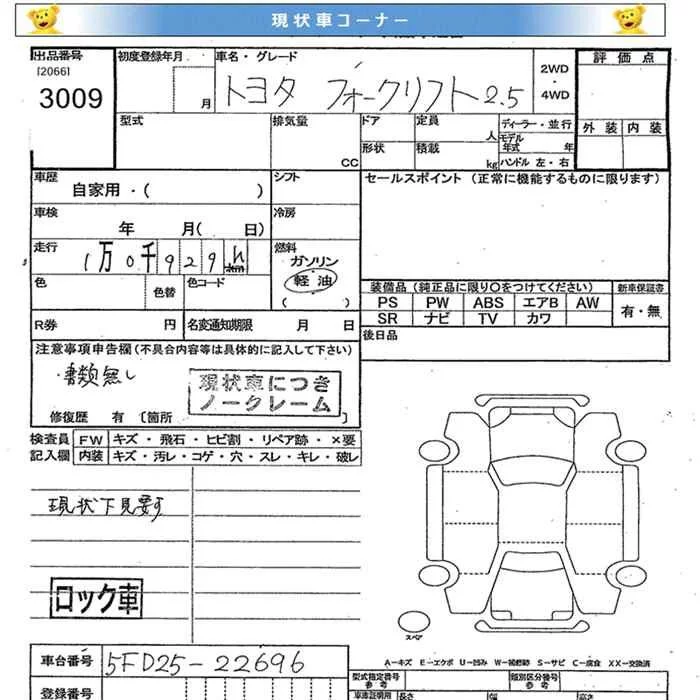 現状車コーナー
出品番号
[2066]
3009
初度登録年月
月
車名・グレード
トヨタ フォークリフト 2.5
2WD
・
4WD
評価点
外装 内装
型式
排気量
CC
ドア
形状
定員
人
積載
kg
ディーラー・並行
モデル
年式 年
ハンドル 左・右
車歴
自家用・( )
シフト
セールスポイント (正常に機能するものに限ります)
車検
年 月( 日)
冷房
走行
1万0千929h
km
燃料
ガソリン
軽油
( )
色
色替
色コード
装備品(純正品に限り〇をつけてください)
新車保証書
PS PW ABS エアB AW
SR ナビ TV カワ
有・無
R券 円
名変通知期限 月 日
後日品
注意事項申告欄(不具合内容等は具体的に記入して下さい)
・書類無し
現状車につき
ノークレーム
修復歴 有 〔箇所
検査員
記入欄
FW キズ・飛石・ヒビ割・リペア跡・×要
内装 キズ・汚レ・コゲ・穴・スレ・キレ・破レ
現状下見要す
ロック車
スペア
車台番号 5FD25-22696
A-キズ E-エクボ U-凹み W-補修跡 S-サビ C-腐食 XX-交換済
登録番号
型式指定番号
参考
類別区分番号
参考
車庫証明用
長さ
幅
高さ